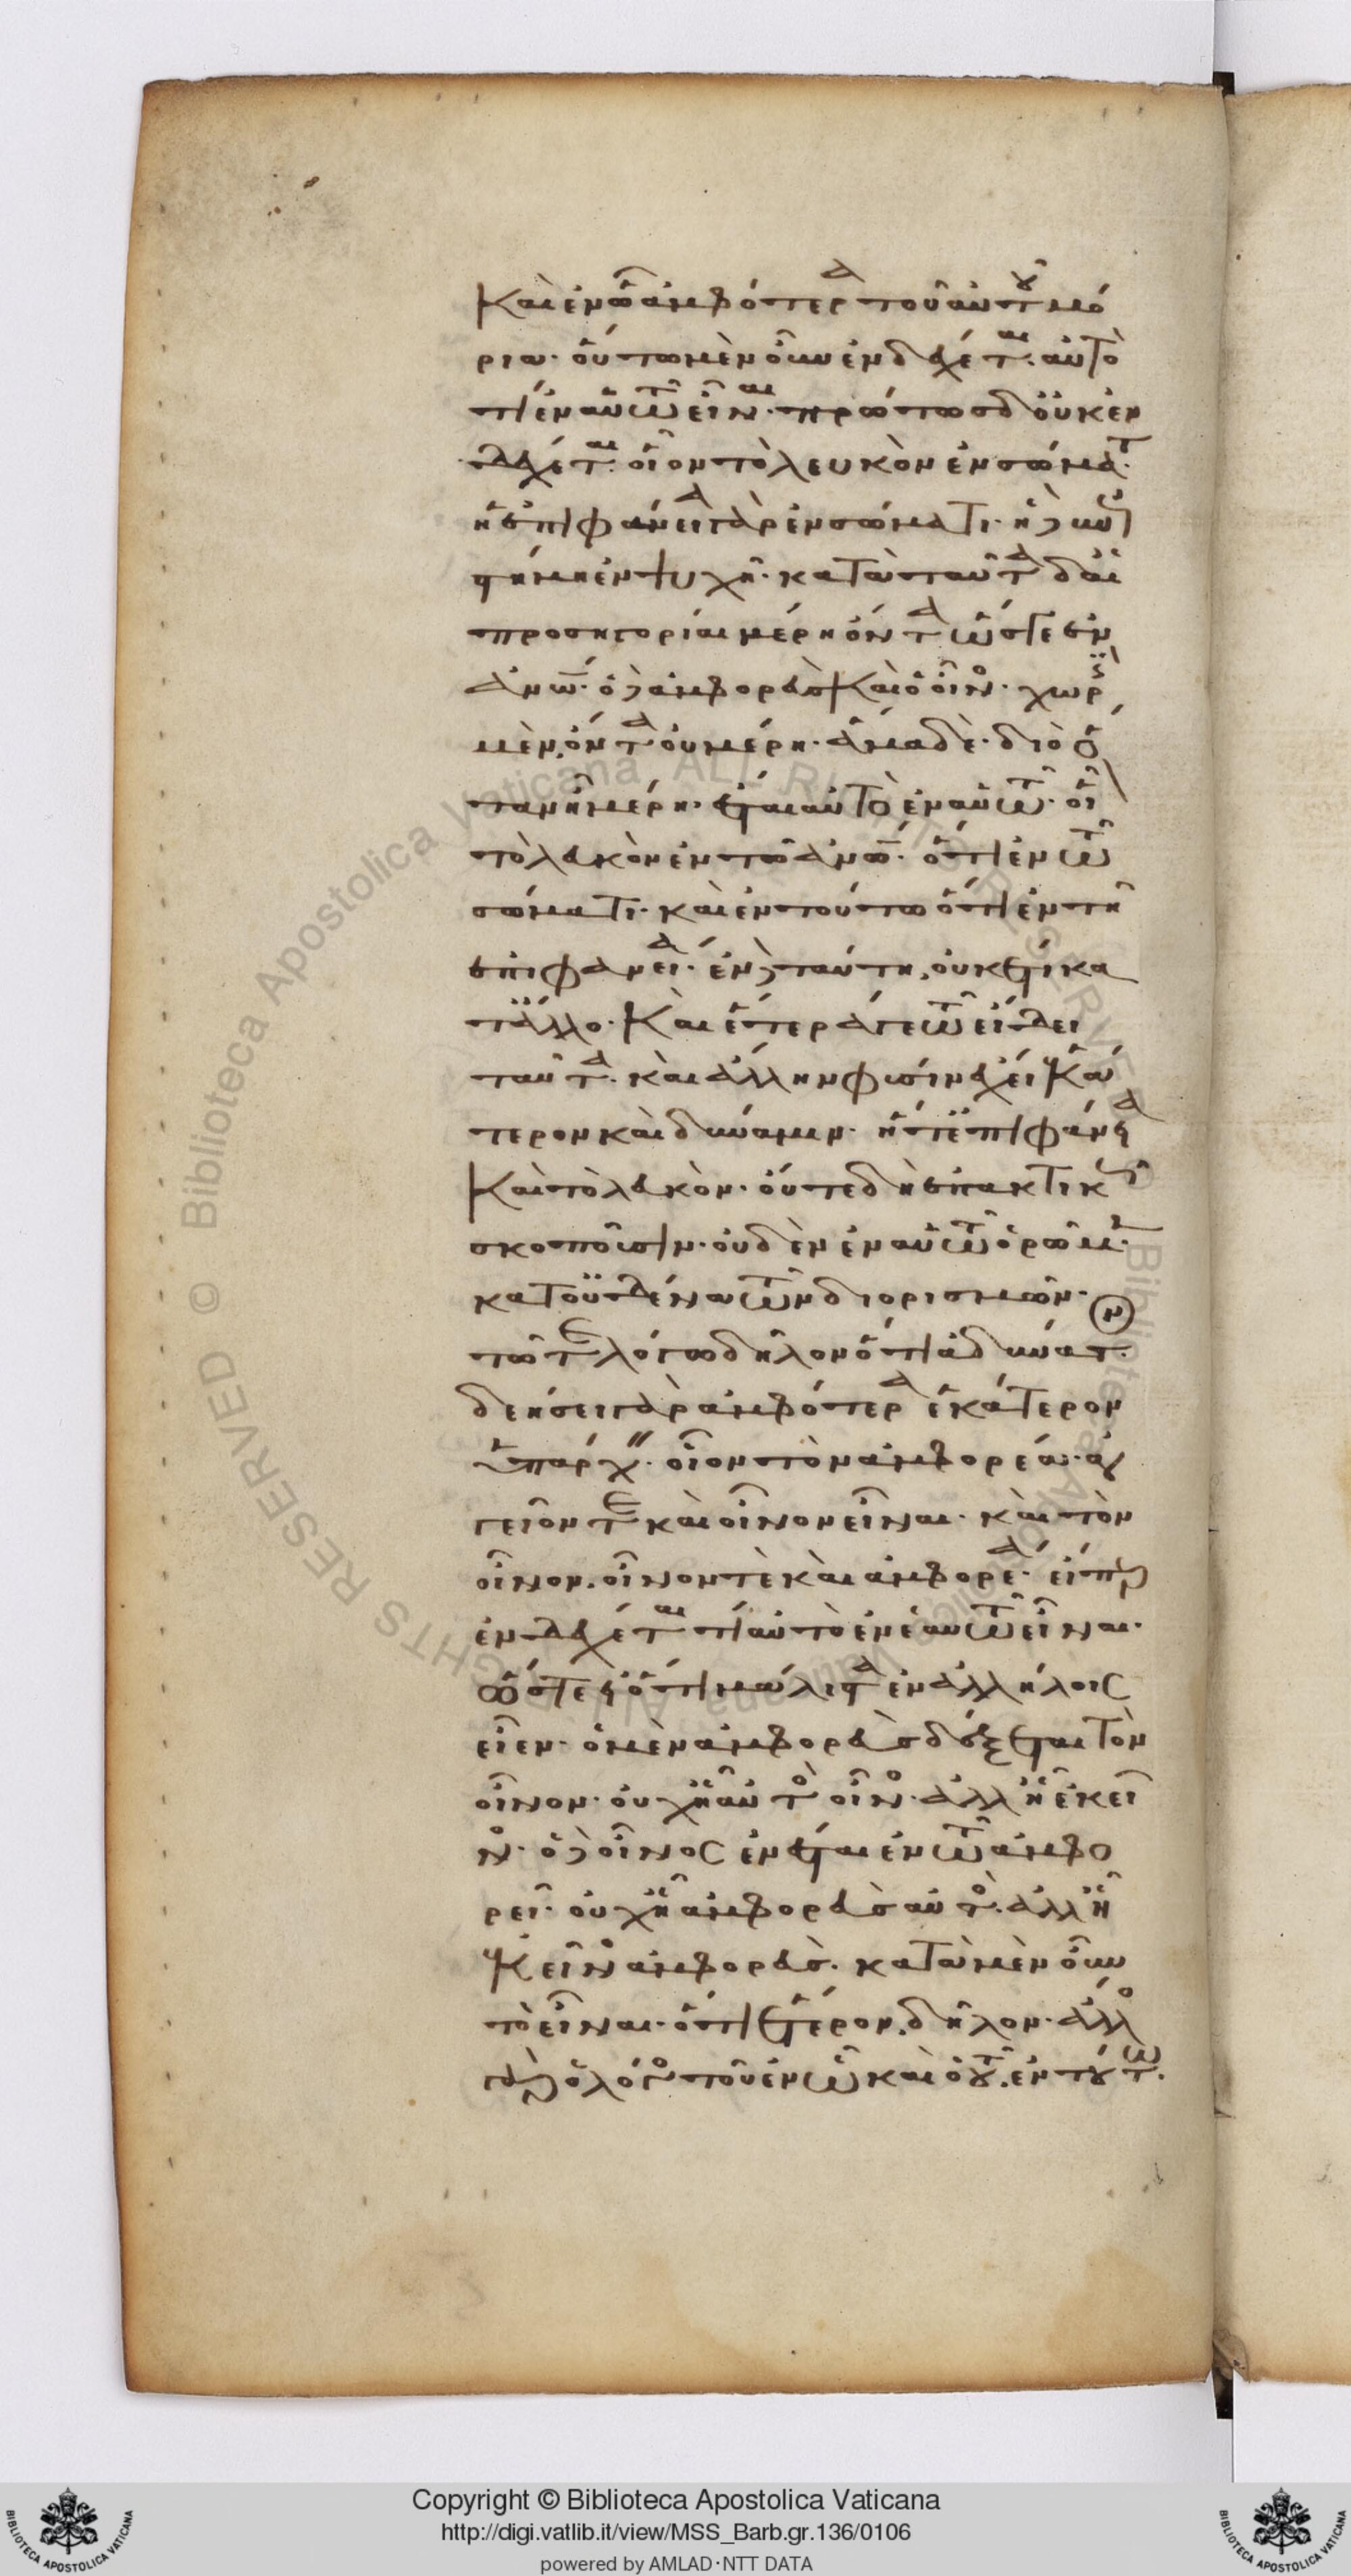 Καὶ ἐν ὧ ἀμφότερα τοῦ αὐτοῦ μό
ρια· οὕτω μὲν οὖν ἐνδέχεται αὐτό
τι ἐν αὑτῶ εἶναι· πρώτως δ οὐκ ἐν
δέχεται· οἷον τὸ λευκὸν ἐν σώματι·
ἡ ἐπιφάνεια γὰρ ἐν σώματι· ἡ δ ἐπι
στήμη ἐν ψυχῆ· κατὰ ταῦτα δ αἱ
προσηγορίαι μέρη ὄντα ὥς γε ἐν
ἀνω· ὁ δ ἀμφορεὺς καὶ ὁ οἶνος· χωρὶς
μὲν ὄντα οὐ μέρη· ἅμα δέ· διὸ ὅ
ταν ἦ μέρη· ἔσται αὐτὸ ἐν αὑτῶ· οἷον
τὸ λευκὸν ἐν τῶ ἀνω· ὅτι ἐν τῶ
σώματι· καὶ ἐν τούτω ὅτι ἐν τῆ
ἐπιφανεία· ἐν δὲ ταύτη οὐκέτι κα
τ ἄλλο· Καὶ ἕτερά γε τῶ εἴδει
ταῦτα· καὶ ἄλλην φύσιν ἔχει ἑκά
τερον καὶ δύναμιν· ἥ τ ἐπιφάνεια
Καὶ τὸ λευκόν· οὔτε δὴ ἐπακτικῶς
σκοποῦσιν· οὐδὲν ἐν αὑτῶ ὁρῶμεν·
κατ οὐδένα τῶν διορισμῶν·
τῶ τε λόγω δῆλον ὅτι ἀδύνατον·
δεήσει γὰρ ἀμφότερα ἑκάτερον
ὑπάρχειν· οἷον τὸν ἀμφορέα· ἀγ
γεῖόν τε καὶ οἶνον εἶναι· καὶ τὸν
οἶνον· οἶνόν τε καὶ ἀμφορέα· εἴπερ
ἐνδέχεταί τι αὐτὸ ἐν ἑαυτῶ εἶναι·
ὥστε εἰ ὅτι μάλιστα ἐν ἀλλήλοις
εἶεν· ὁ μὲν ἀμφορεὺς δέξεται τὸν
οἶνον· οὐχ ἧ αὐτὸς οἶνος· ἀλλ ἧ ἐκεῖ
νος· ὁ δ οἶνος ἐνέσται ἐν τῶ ἀμφο
ρεῖ· οὐχ ἧ ἀμφορεὺς αὐτός· ἀλλ ἧ
ἐκεῖνος ἀμφορεύς· κατὰ μὲν οὖν
τὸ εἶναι· ὅτι ἕτερον, δῆλον· ἄλλος
γὰρ ὁ λόγος τοῦ ἐν ὧ καὶ τοῦ ἐν τούτω.